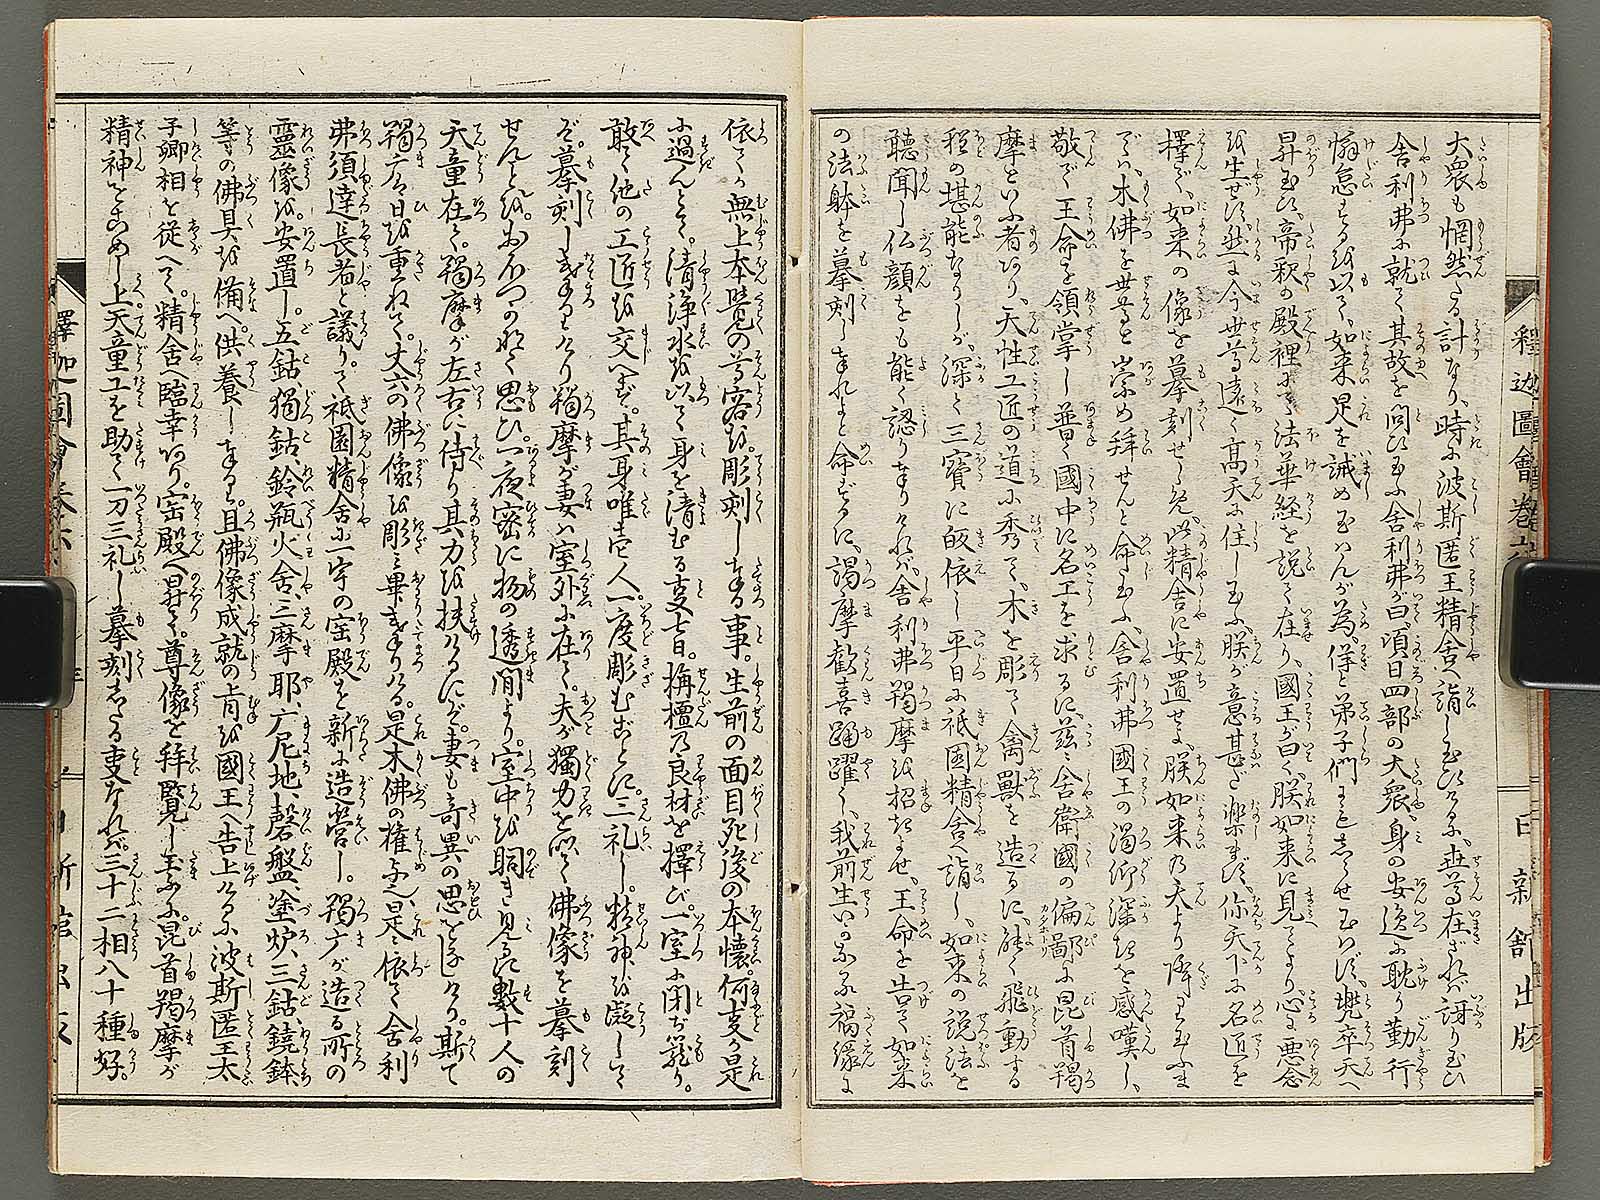 大衆も惘然たる計なり。時に波斯匿王精舎へ詣し玉ひけるに、世尊在ざれば訝り玉ひ
舎利弗に就て其故を問ひ玉ふ舎利弗が曰、頃日四部の大衆、身の安逸に耽り勤行
懈怠するを以て、如来是を誡め玉はんが為、侍と弟子們にも知らせ玉はず、兜卒天へ
昇玉ひ、帝釈の殿裡にて法華経を説て在り、國王が曰く、朕如来に見てより心に悪念
を生ぜず、然に今世尊遠く高天に住し玉ふ、朕が意甚だ楽まず、你天下に名匠を
擇で、如来の像を摹刻せしめ、此精舎に安置せよ、朕如来の天より降り玉ふま
では、木佛を世尊と崇め拜せんと命玉ふ、舎利弗國王の渇仰深きを感嘆し、
敬で王命を領掌し普く國中に名工を求るに、茲に舎衛國の偏鄙に毘首羯
摩といふ者あり、天性工匠の道に秀て、木を彫て禽獸を造るに、能く飛動する
程の堪能なりしが、深く三寳に皈依し平日に祇園精舎へ詣し、如来の説法を
聴聞し仏顔をも能く認り奉りければ、舎利弗羯摩を招きよせ、王命を告て如来
の法躰を摹刻し奉れよと命ずるに、羯摩歓喜踊躍し、我前生いかなる福縁に
依てか無上本覺の尊容を。彫刻し奉る事。生前の面目死後の本懐。何事か是
に過んとて。清浄水を以て身を清むる事七日。栴檀の良材を擇び。一室に閉ぢ籠り。
敢て他の工匠を交へず。其身唯壱人。一度彫むごとに。三礼し。精神を凝して
ぞ。摹刻し奉りける羯摩が妻は室外に在て。夫が獨力を以て佛像を摹刻
せんとを。おぼつかなく思ひ。一夜密に物の透間より。室中を覘き見るに數十人の
天童在て。羯摩が左右に侍り其力を扶けるにぞ。妻も奇異の思をなしけり。斯て
羯广は日を重ねて。丈六の佛像を彫み畢奉りける。是木佛の權與也是に依て舎利
弗須達長者と議りて祇園精舎に一宇の宝殿を新に造営し。羯广が造る所の
靈像を。安置し。五鈷、獨鈷、鈴瓶火舎、三摩耶、广尼地、磬盤、塗炉、三鈷、鐃鉢、
等の佛具を備へ。供養し奉る。且佛像成就の㫖を國王へ告上けるに波斯匿王太
子卿相を従へて。精舎へ臨幸あり。宝殿へ昇て。尊像を拜覧し玉ふに。毘首羯摩が
精神をこめし上。天童工を助て一刀三礼し摹刻したる事なれば。三十二相八十種好。
釋迦圖會巻六
日新舘出版